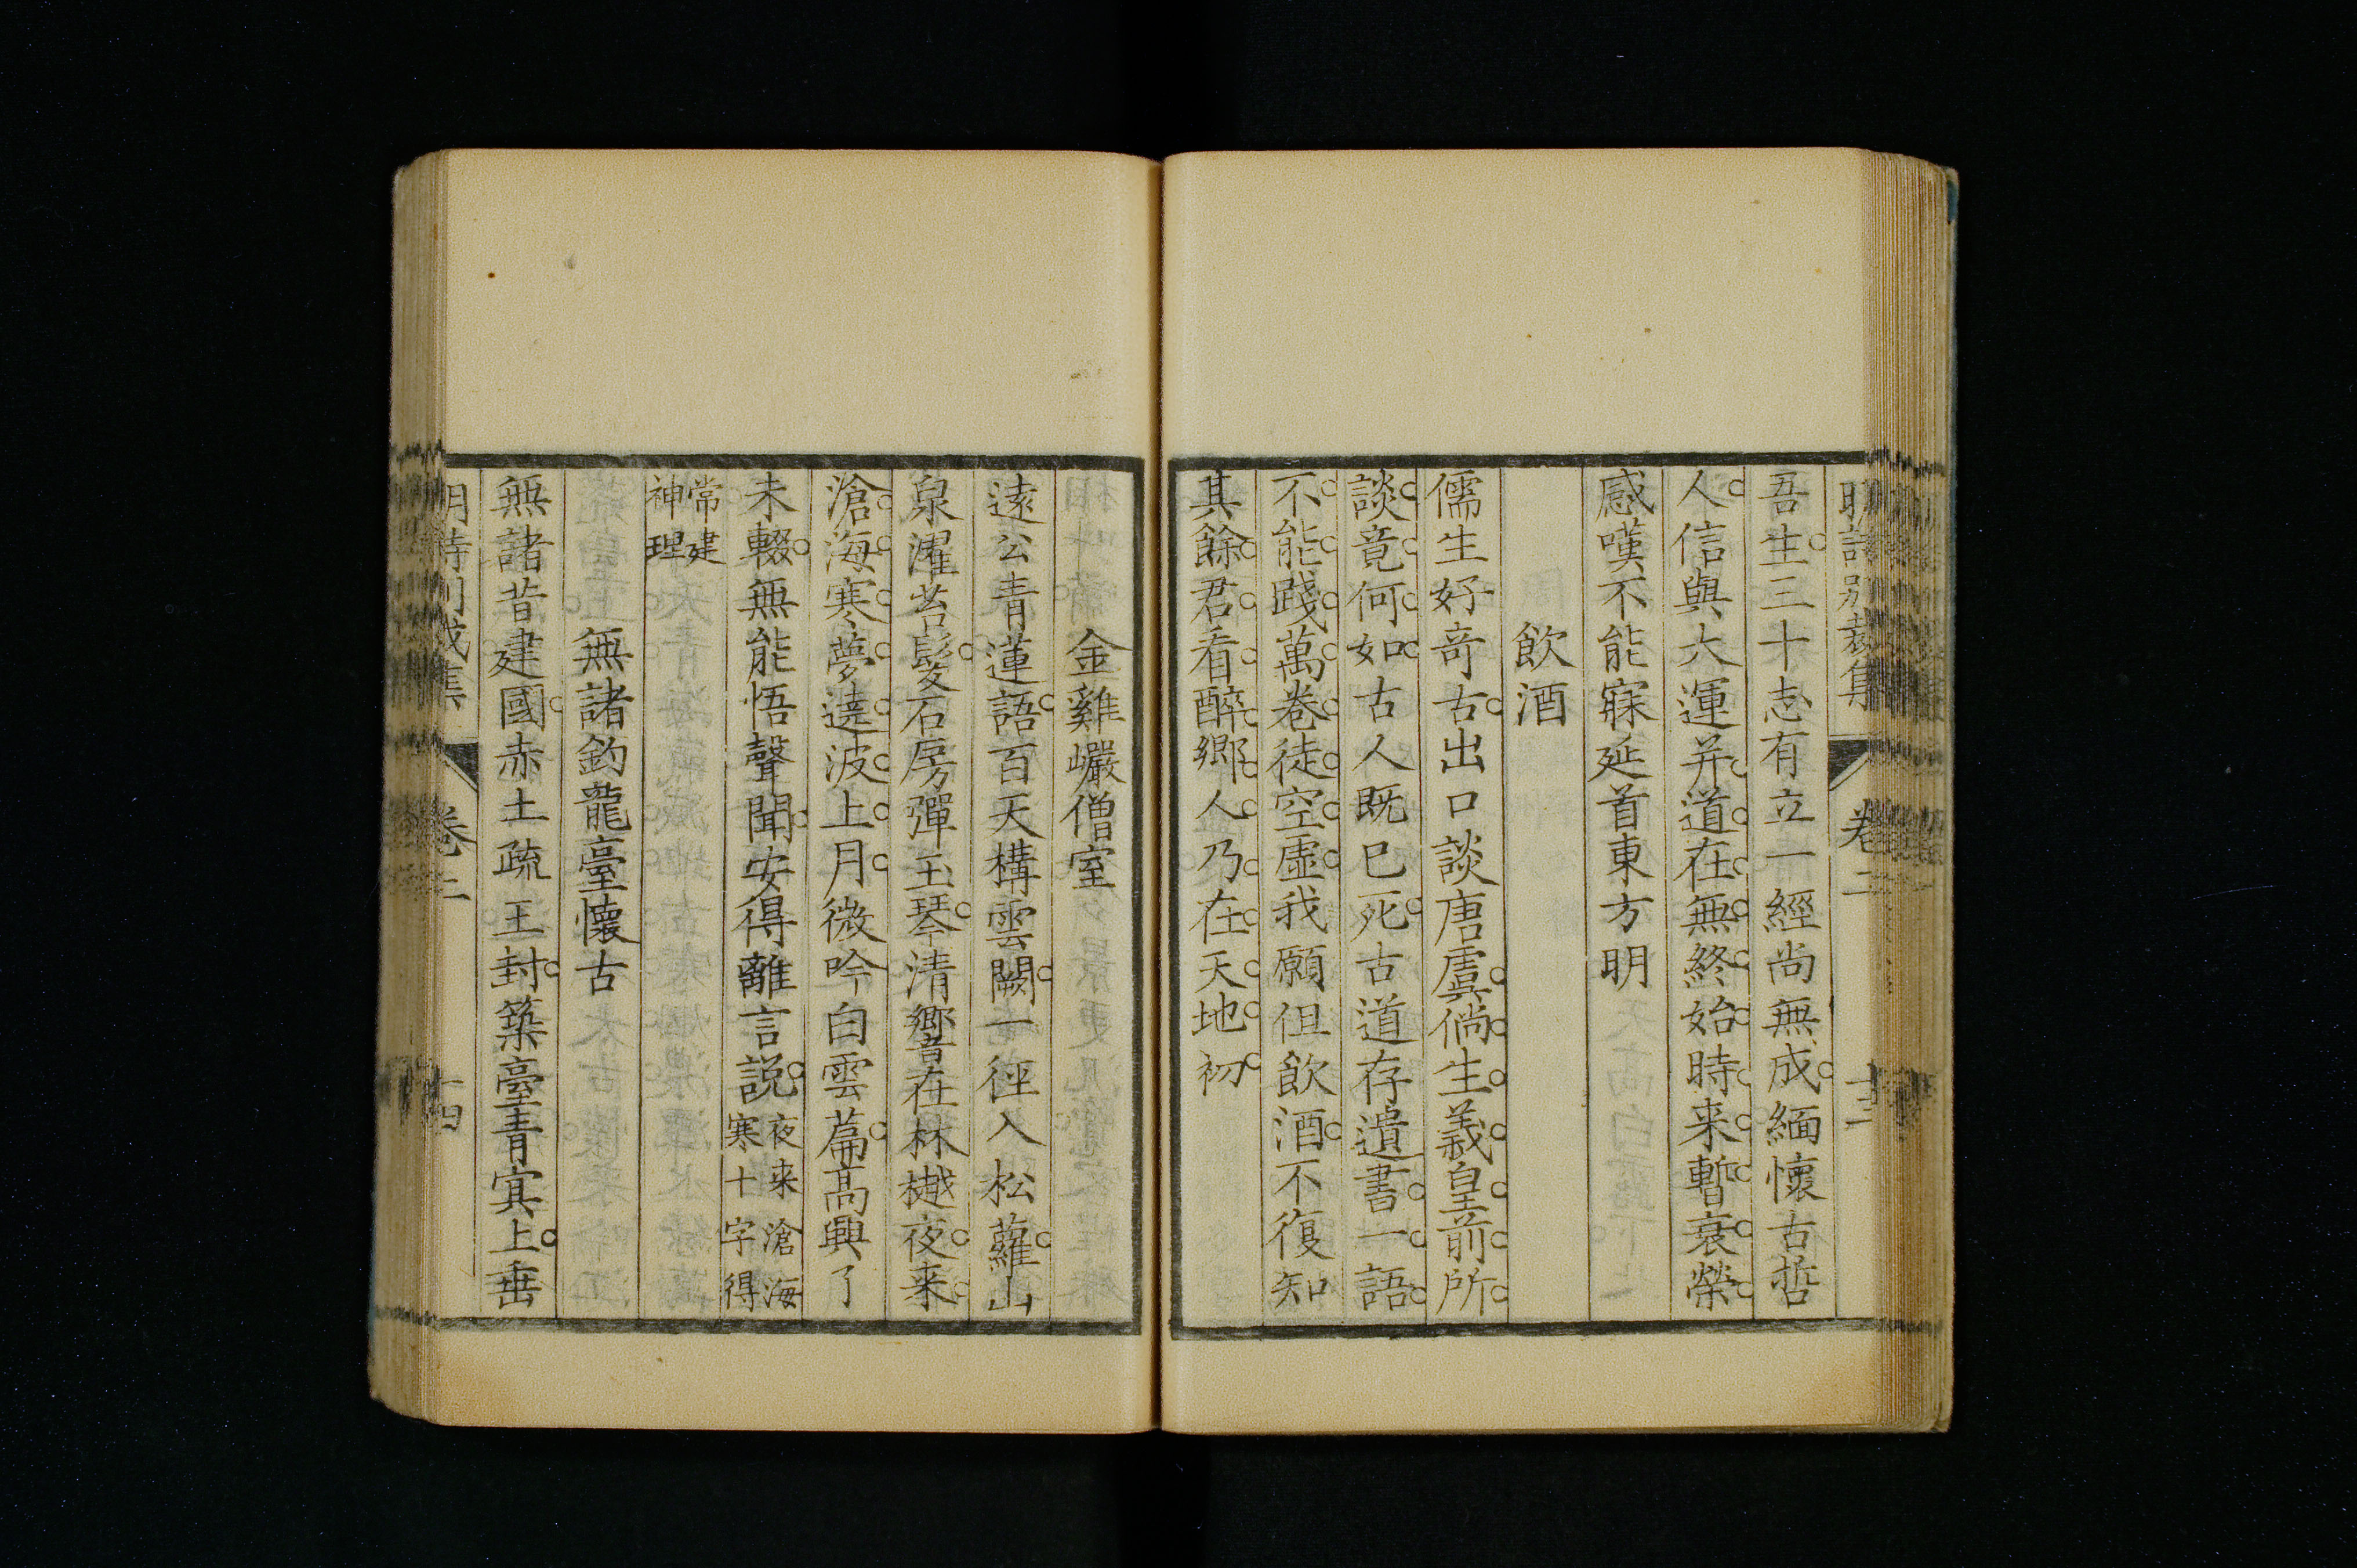 明詩別裁集 卷二 十三
吾生三十志有立一經尚無成緬懷古哲
人信與大運并道在無終始時来暫衰榮
感嘆不能寐延首東方明
飲酒
儒生好奇古出口談唐虞倘生義皇前所
談竟何如古人既已死古道存遺書一語
不能踐萬卷徒空虛我願但飲酒不復知
其餘君看醉鄉人乃在天地初
金雞巖僧室
遠公青蓮語百天構雲闕一徑入松蘿山
泉濯苔髮石房彈玉琴清響在林樾夜来
滄海寒夢遶波上月微吟白雲篇高興了
未輟無能悟聲聞安得離言説夜来滄海
寒十字得
常建
神理
無諸釣龍臺懷古
無諸昔建國赤土疏王封築臺青冥上垂
明詩別裁集 卷二 十四